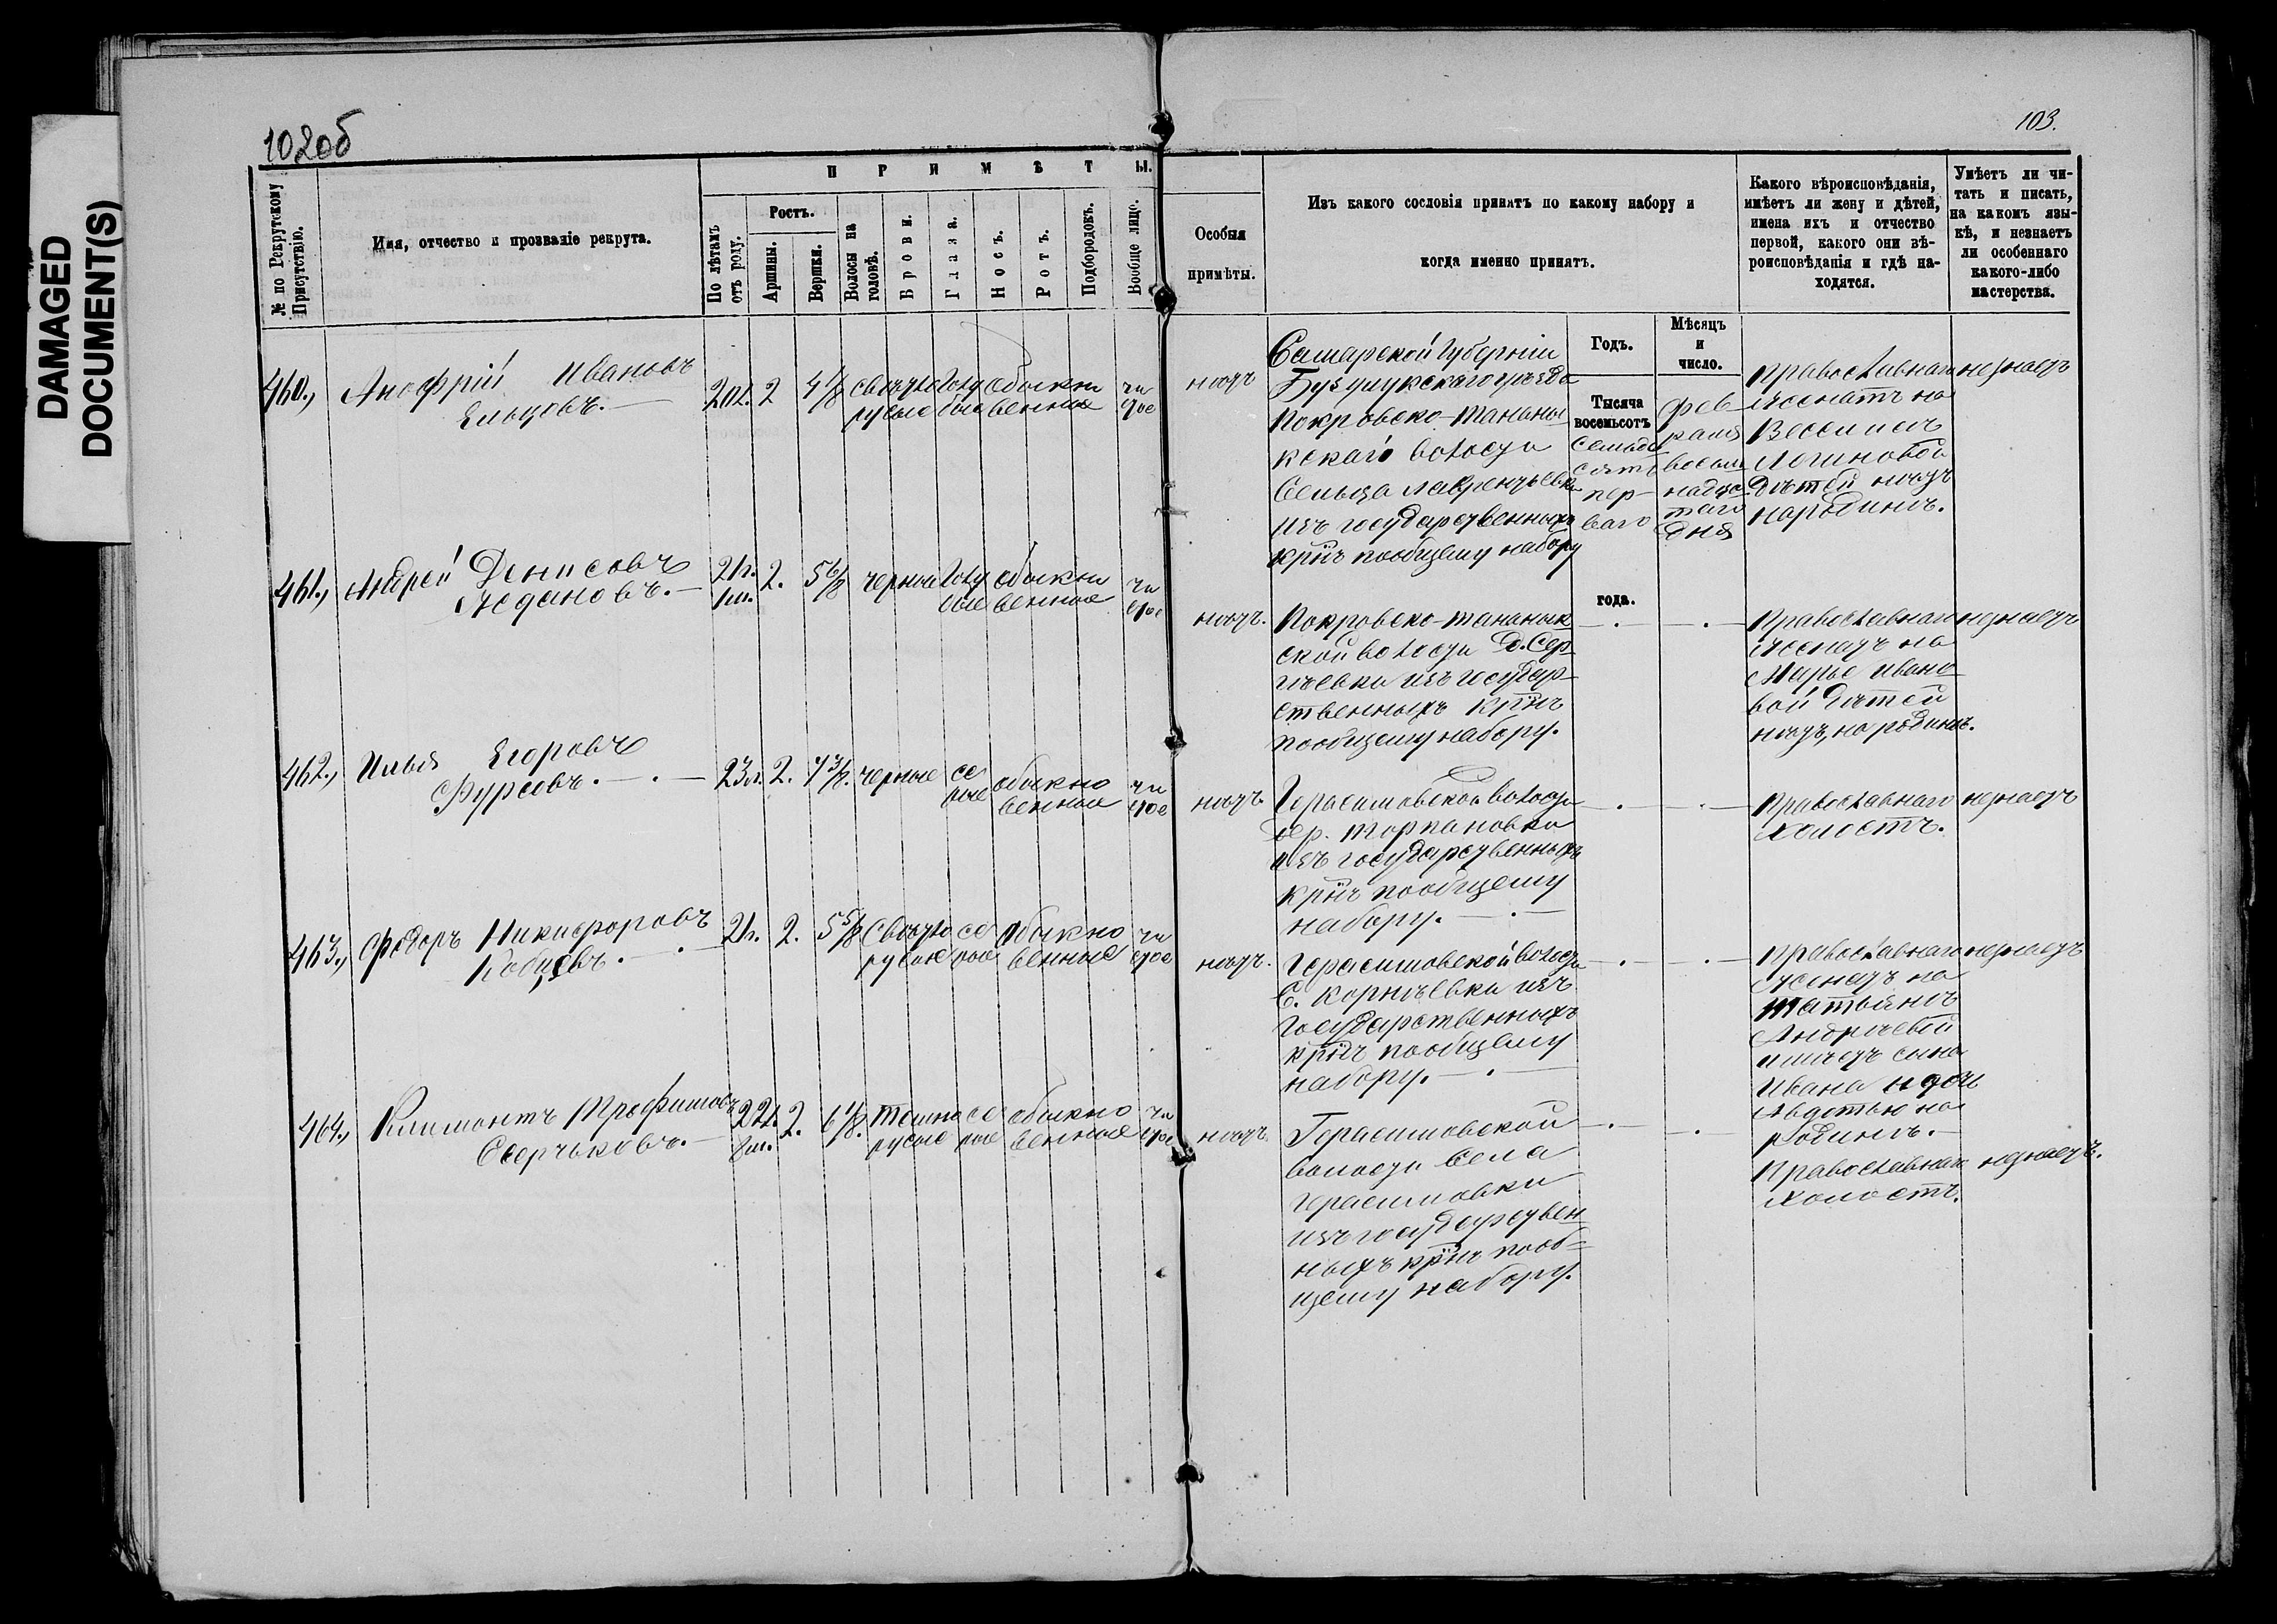 DAMAGED
DOCUMENT(S)
102об
103.
№ по Рекрутскому Присутствію.
Имя, отчество и прозваніе рекрута.
ПРИМѢТЫ.
По лѣтамъ отъ роду.
Ростъ.
Аршины.
Вершки.
Волосы на головѣ.
Брови.
Глаза.
Носъ.
Ротъ.
Подбородокъ.
Вообще лице.
Особыя
примѣты.
Изъ какого сословія принятъ по какому набору и
когда именно принятъ.
Какого вѣроисповѣданія,
имѣетъ ли жену и дѣтей,
имена ихъ и отчество
первой, какого они вѣ-
роисповѣданія и гдѣ на-
ходятся.
Умѣетъ ли чи-
тать и писать,
на какомъ язы-
кѣ, и незнаетъ
ли особеннаго
какого-либо
мастерства.
Годъ.
Мѣсяцъ
и
число.
460., Анофрій Ивановъ
Ельцовъ.—
20л. 2 4 1/8
свѣтло
русые
голу
бые
обыкно
венные
чи
стое
нѣтъ
Самарской Губерніи
Бузулукскаго уѣзда
Покровско-Тананы
кскаго волости
Сельца Лаврентьевки
изъ государственныхъ
крнъ пообщему набору
Тысяча
восемьсотъ
семьде
сятъ
пер-
ваго
года.
фев-
раля
восем
надца
таго
дня
Православнаго
женатъ на
Логиновой
дѣтей нѣтъ
народинѣ.
незнаетъ
461., Андрей Денисовъ
Ждановъ.—
21л.
2. 5 6/8
черные
голу
бые
обыкно
венные
чи
стое
нѣтъ.
Покровско-Тананык
ской волости д. Сер
гѣевки изъ государ
ственныхъ крнъ
пообщему набору.
Православнаго
женатъ на
Марье Ивано
вой дѣтей
нѣтъ, народинѣ.
незнаетъ
462., Илья Егоровъ
Фурсовъ.—.—
23л. 2. 4 3/8.
черные
се
рые
обыкно
венные
чи
стое
нѣтъ
Герасимовской волости
дер. Торпановки
изъ государственныхъ
крнъ пообщему
набору.—.—
Православнаго
холостъ.
незнаетъ
463., Федоръ Никифоровъ
21л. 2. 5 5/8
свѣтло
русые
се
рые
обыкно
венные
чи
стое
нѣтъ.
Герасимовской волости
с. Корнѣевки изъ
Государственныхъ
крнъ пообщему
набору.—.—
Православнаго
женатъ на
Татьянѣ
Андрѣевой
имѣетъ сына
Ивана и дочь
Авдотью на
родинѣ.—
незнаетъ
464., Климонтъ Трофимовъ
Сверчковъ.—
22л.
8м.
2. 6 1/8.
темно
русые
се
рые
обыкно
венные
чи
стое
нѣтъ
Герасимовской
волости села
Герасимовки
изъ государствен
ныхъ крнъ пооб=
щему набору.
Православнаго
холостъ.
незнаетъ.